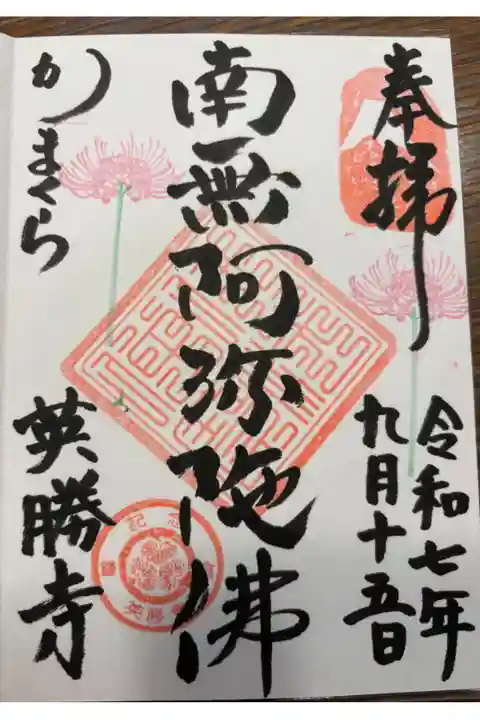 奉拝
令和七年
九月十五日
南無阿弥陀佛
かまくら
英勝寺
記念
英勝